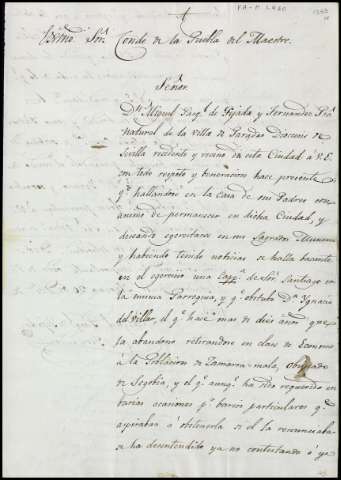 Exmo. Sor. Conde de la Puebla del Maestre.
Señor
Dn. Miguel de Tejada y Fernandez Pro.
natural de la villa de Paradas Diocesis de
Sevilla recidente y vecino de esta Ciudad á V. E.
con todo respeto y beneracion hace presente
qe. hallandose en la Casa de sus Padres con
animo de permanecer en dicha Ciudad, y
deseando egercitarse en su Sagrado Ministerio
y habiendo tenido noticias se halla bacante
en el egercicio una Cappa. de Sor. Santiago en
la misma Parroquia, y qe. obtubo Dn. Ygnacio
del Villar, el qe. hace mas de diez años que
la abandono retirandose en clase de Economo
á la Poblacion de Zamarra-mala, Obispado
de Segobia, y el qe. aunqe. ha sido requerido en
barias ocasiones pr. barios particulares qe.
aspiraban á obtenerla si él la renunciaba
se ha desentendido ya no contestando ó ya